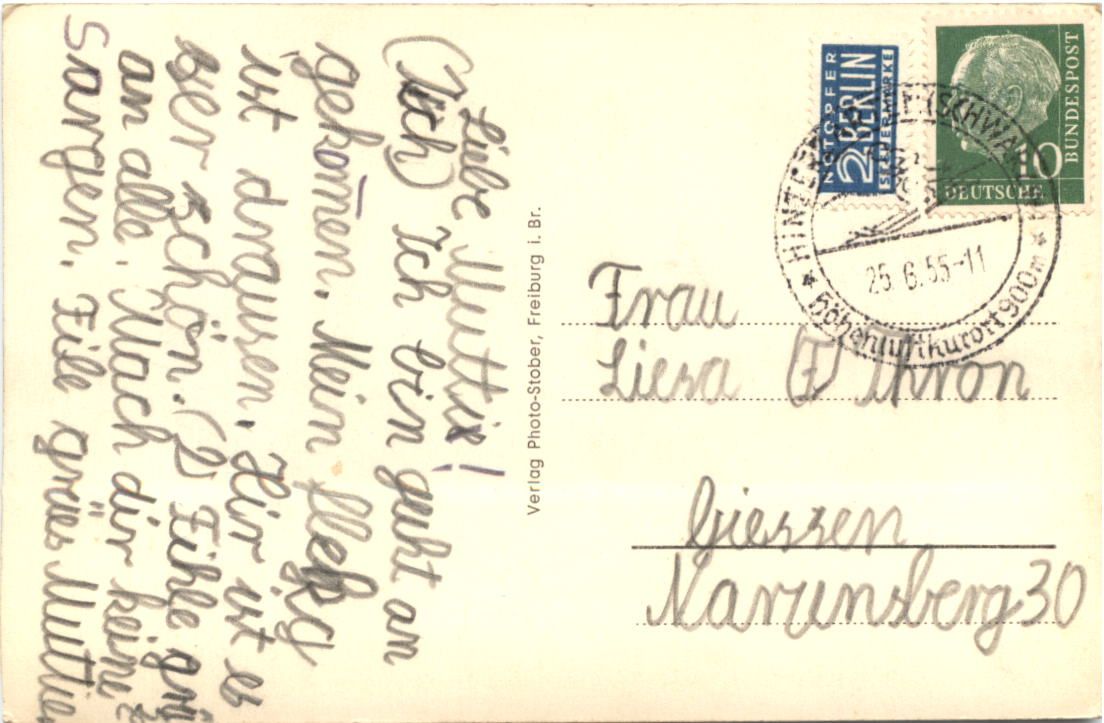 Liebe Muttie!
(Isch) Ich bin guht an
gekomen. Mein flekgs
ist drausen. Hir ist es
ser schön. (2) Fühle grü
an alle. Mach dir keine
Sorgen. File grüs Muttie
Verlag Photo-Stober, Freiburg i. Br.
NOTOPFER
2 BERLIN
STEUERMARKE
DEUTSCHE
BUNDESPOST
10
25.6.55-11
Höhenluftkurort 900m
Frau
Liesa Thron
Giessen
30